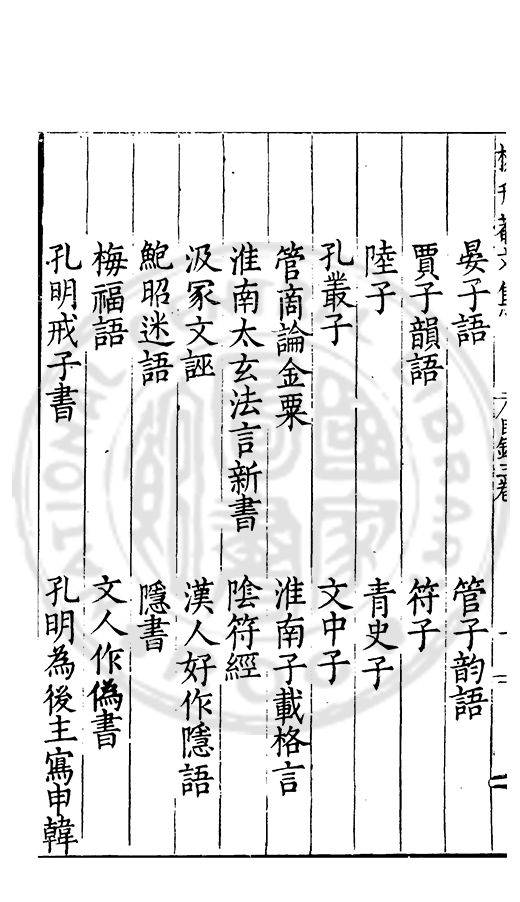 晏子語　管子韵語
賈子韻語　符子
陸子　青史子
孔叢子　文中子
管商論金粟　淮南子載格言
淮南太玄法言新書　陰符經
汲冢文誣　漢人好作隱語
鮑昭迷語　隱書
梅福語　文人作偽書
孔明戒子書　孔明為後主寫申韓